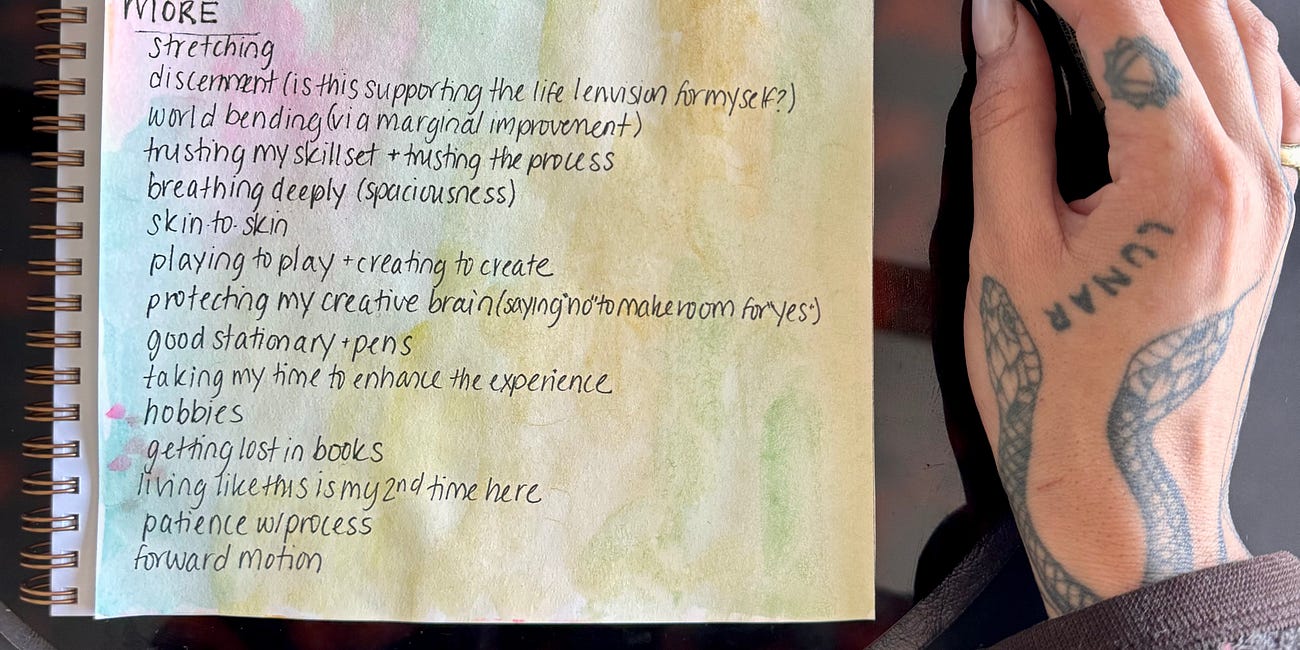 MORE
stretching
discernment (is this supporting the life I envision for myself?)
world bending (via marginal improvement)
trusting my skillset + trusting the process
breathing deeply (spaciousness)
skin-to-skin
playing to play + creating to create
protecting my creative brain (saying "no" to make room for "yes")
good stationary + pens
taking my time to enhance the experience
hobbies
getting lost in books
living like this is my 2nd time here
patience w/process
forward motion
LUNAR